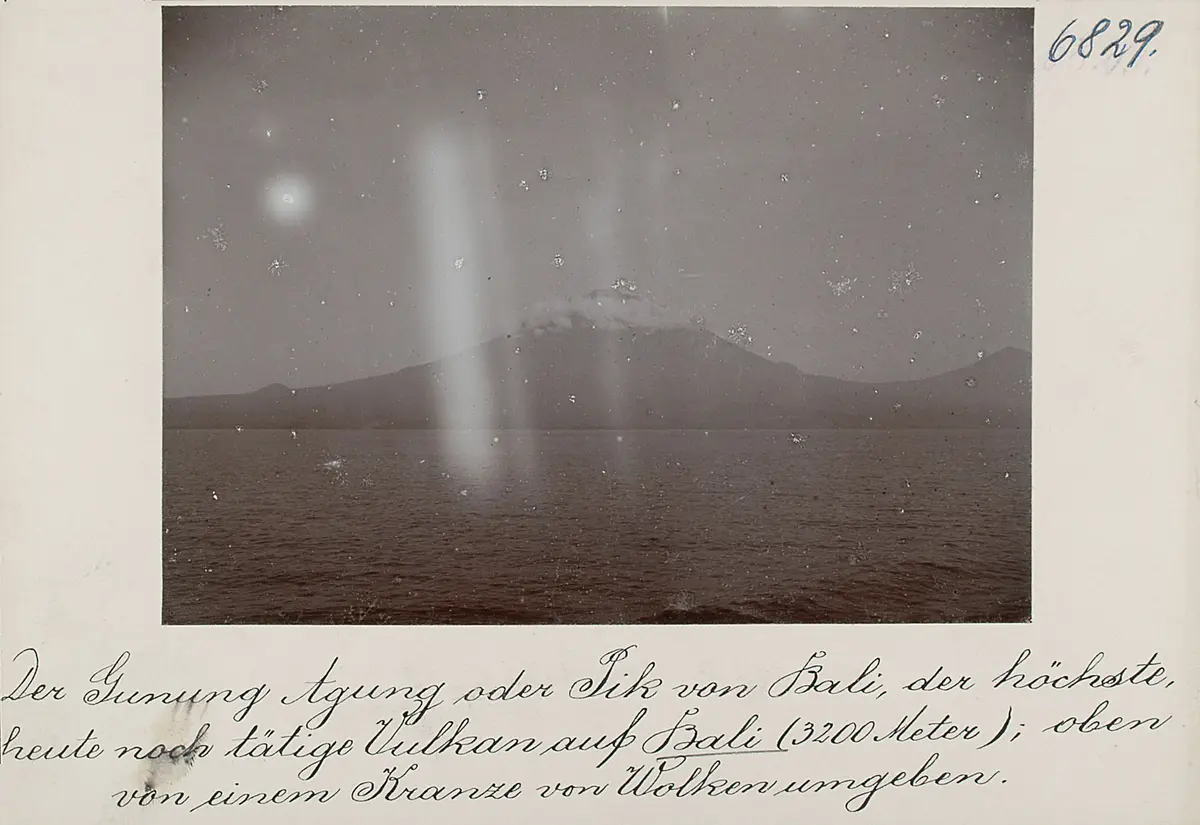 6829.
Der Gunung Agung oder Pik von Bali, der höchste,
heute noch tätige Vulkan auf Bali (3200 Meter); oben
von einem Kranze von Wolken umgeben.